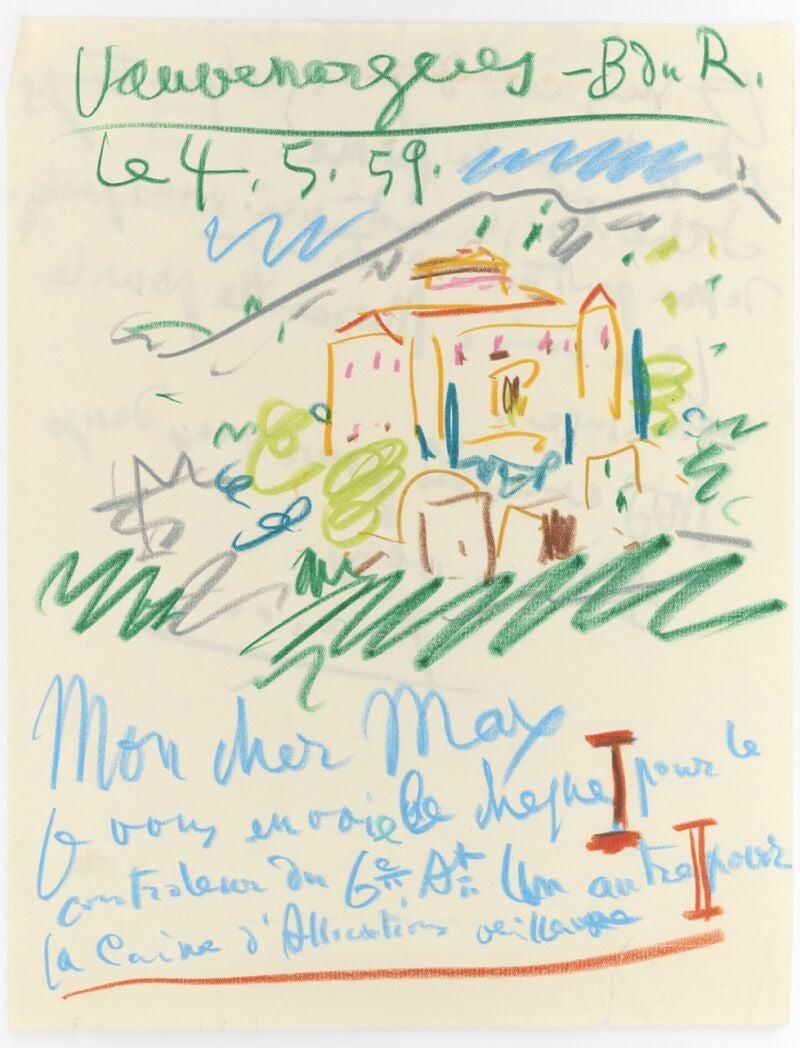 Vauvenargues – B du R.
le 4. 5. 59.
Mon cher Max
Je vous envoie le cheque I pour le
controleur du 6e At. Un autre II pour
la Caisse d'Allocations vieillesse